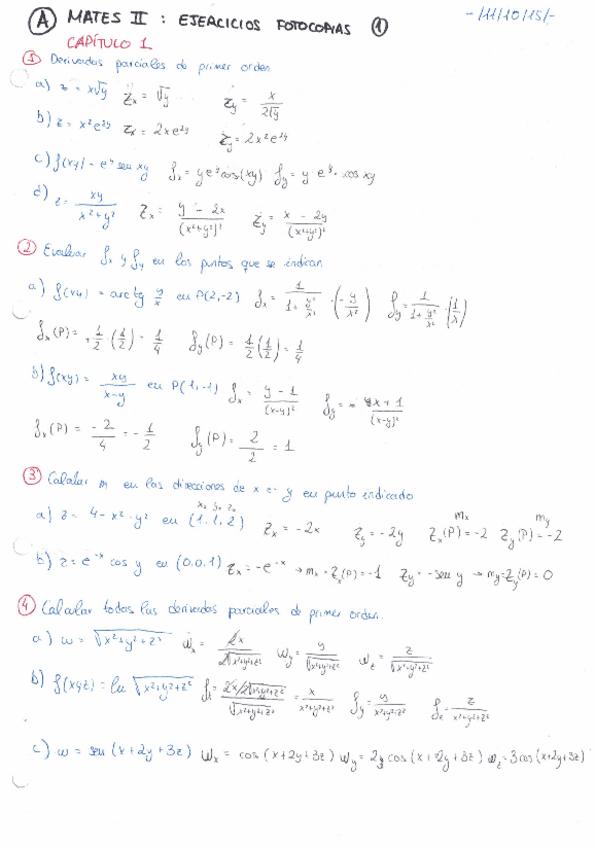 A MATES II : EJERCICIOS FOTOCOPIAS 1 -/11/10/15/-
CAPÍTULO 1
1 Derivadas parciales de primer orden
a) z = x√y Zx = √y Zy = x/(2√y)
b) z = x²e^2y Zx = 2xe^2y Zy = 2x²e^2y
c) f(xy) = e^y sen xy fx = y e^y cos(xy) fy = y e^y · cos xy
d) z = xy/(x²+y²) Zx = (y - 2x)/(x²+y²)² Zy = (x - 2y)/(x²+y²)²
2 Evaluar fx y fy en los puntos que se indican
a) f(xy) = arc tg y/x en P(2,-2) fx = 1/(1+y²/x²) · (-y/x²) fy = 1/(1+y²/x²) · (1/x)
fx(P) = 1/2 · (1/2) = 1/4 fy(P) = 1/2 (1/2) = 1/4
b) f(xy) = xy/(x-y) en P(1,-1) fx = (y - 1)/(x-y)² fy = (x + 1)/(x-y)²
fx(P) = -2/4 = -1/2 fy(P) = 2/2 = 1
3 Calcular m en las direcciones de x e y en punto indicado
x₀ y₀ z₀ mx my
a) z = 4 - x² - y² en (1,1,2) Zx = -2x Zy = -2y Zx(P) = -2 Zy(P) = -2
b) z = e^-x cos y en (0,0,1) Zx = -e^-x → mx = Zx(P) = -1 Zy = -sen y → my = Zy(P) = 0
4 Calcular todas las derivadas parciales de primer orden.
a) w = √(x²+y²+z²) Wx = 2x/(2√(x²+y²+z²)) Wy = y/√(x²+y²+z²) Wz = z/√(x²+y²+z²)
b) f(xyz) = ln √(x²+y²+z²) fx = (2x/2√(x²+y²+z²))/√(x²+y²+z²) = x/(x²+y²+z²) fy = y/(x²+y²+z²) fz = z/(x²+y²+z²)
c) w = sen (x + 2y + 3z) Wx = cos (x + 2y + 3z) Wy = 2 cos (x + 2y + 3z) Wz = 3 cos (x+2y+3z)